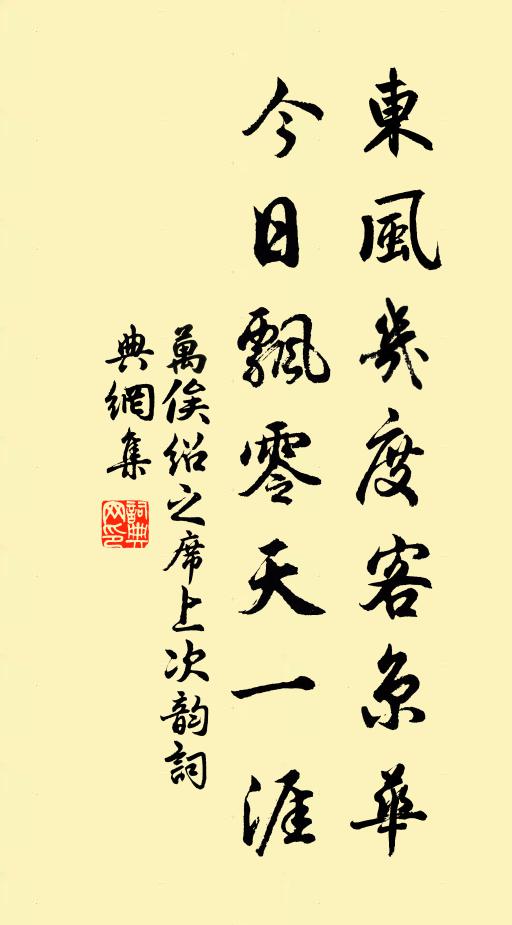 東風幾度客京華
今日飄零天一涯
萬俟紹之席上次韵詞
典網集
詞典
网印